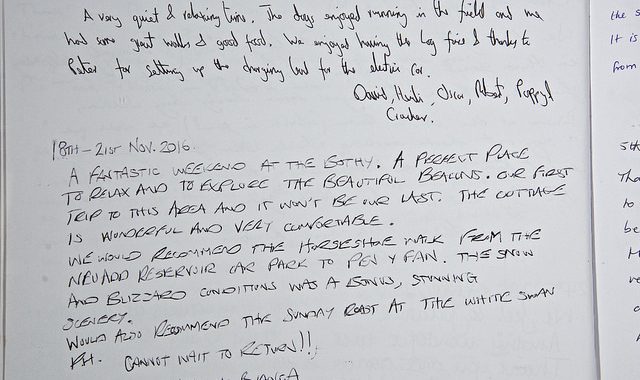 A very quiet & relaxing time. The dogs enjoyed running in the field and we
had some great walks & good food. We enjoyed having the log fire & thanks to
Peter for setting up the charging lead for the electric car.
David, Oscar,
Cracker.
18TH - 21ST NOV. 2016.
A FANTASTIC WEEKEND AT THE BOTHY. A PERFECT PLACE
TO RELAX AND TO EXPLORE THE BEAUTIFUL BEACONS. OUR FIRST
TRIP TO THIS AREA AND IT WON'T BE OUR LAST. THE COTTAGE
IS WONDERFUL AND VERY COMFORTABLE.
WE WOULD RECOMMEND THE HORSESHOE WALK FROM THE
NEUADD RESERVOIR CAR PARK TO PEN Y FAN. THE SNOW
AND BLIZZARD CONDITIONS WAS A BONUS, STUNNING
SCENERY.
WOULD ALSO RECOMMEND THE SUNDAY ROAST AT THE WHITE SWAN
P.H. CANNOT WAIT TO RETURN!!
BIANCA
the s
It is
from
to
be